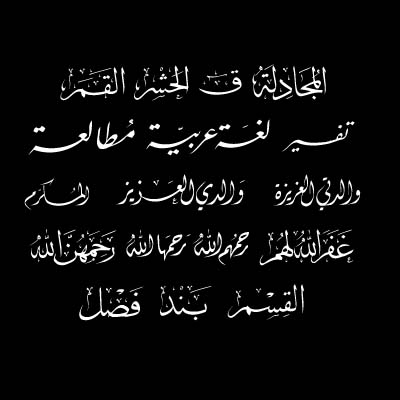 المُجَادِلَةُ ق الحَشْرِ القَمَر
تفسير لغَة عربيّة مُطالعة
والدتي العزيزة وَالدي العَـزيز المُـكرّم
غَفَرَ اللهُ لهم رحمهم اللهُ رحمها اللهُ رَحِمَهُنَّ اللهُ
القِسْم بَنْد فَصْل